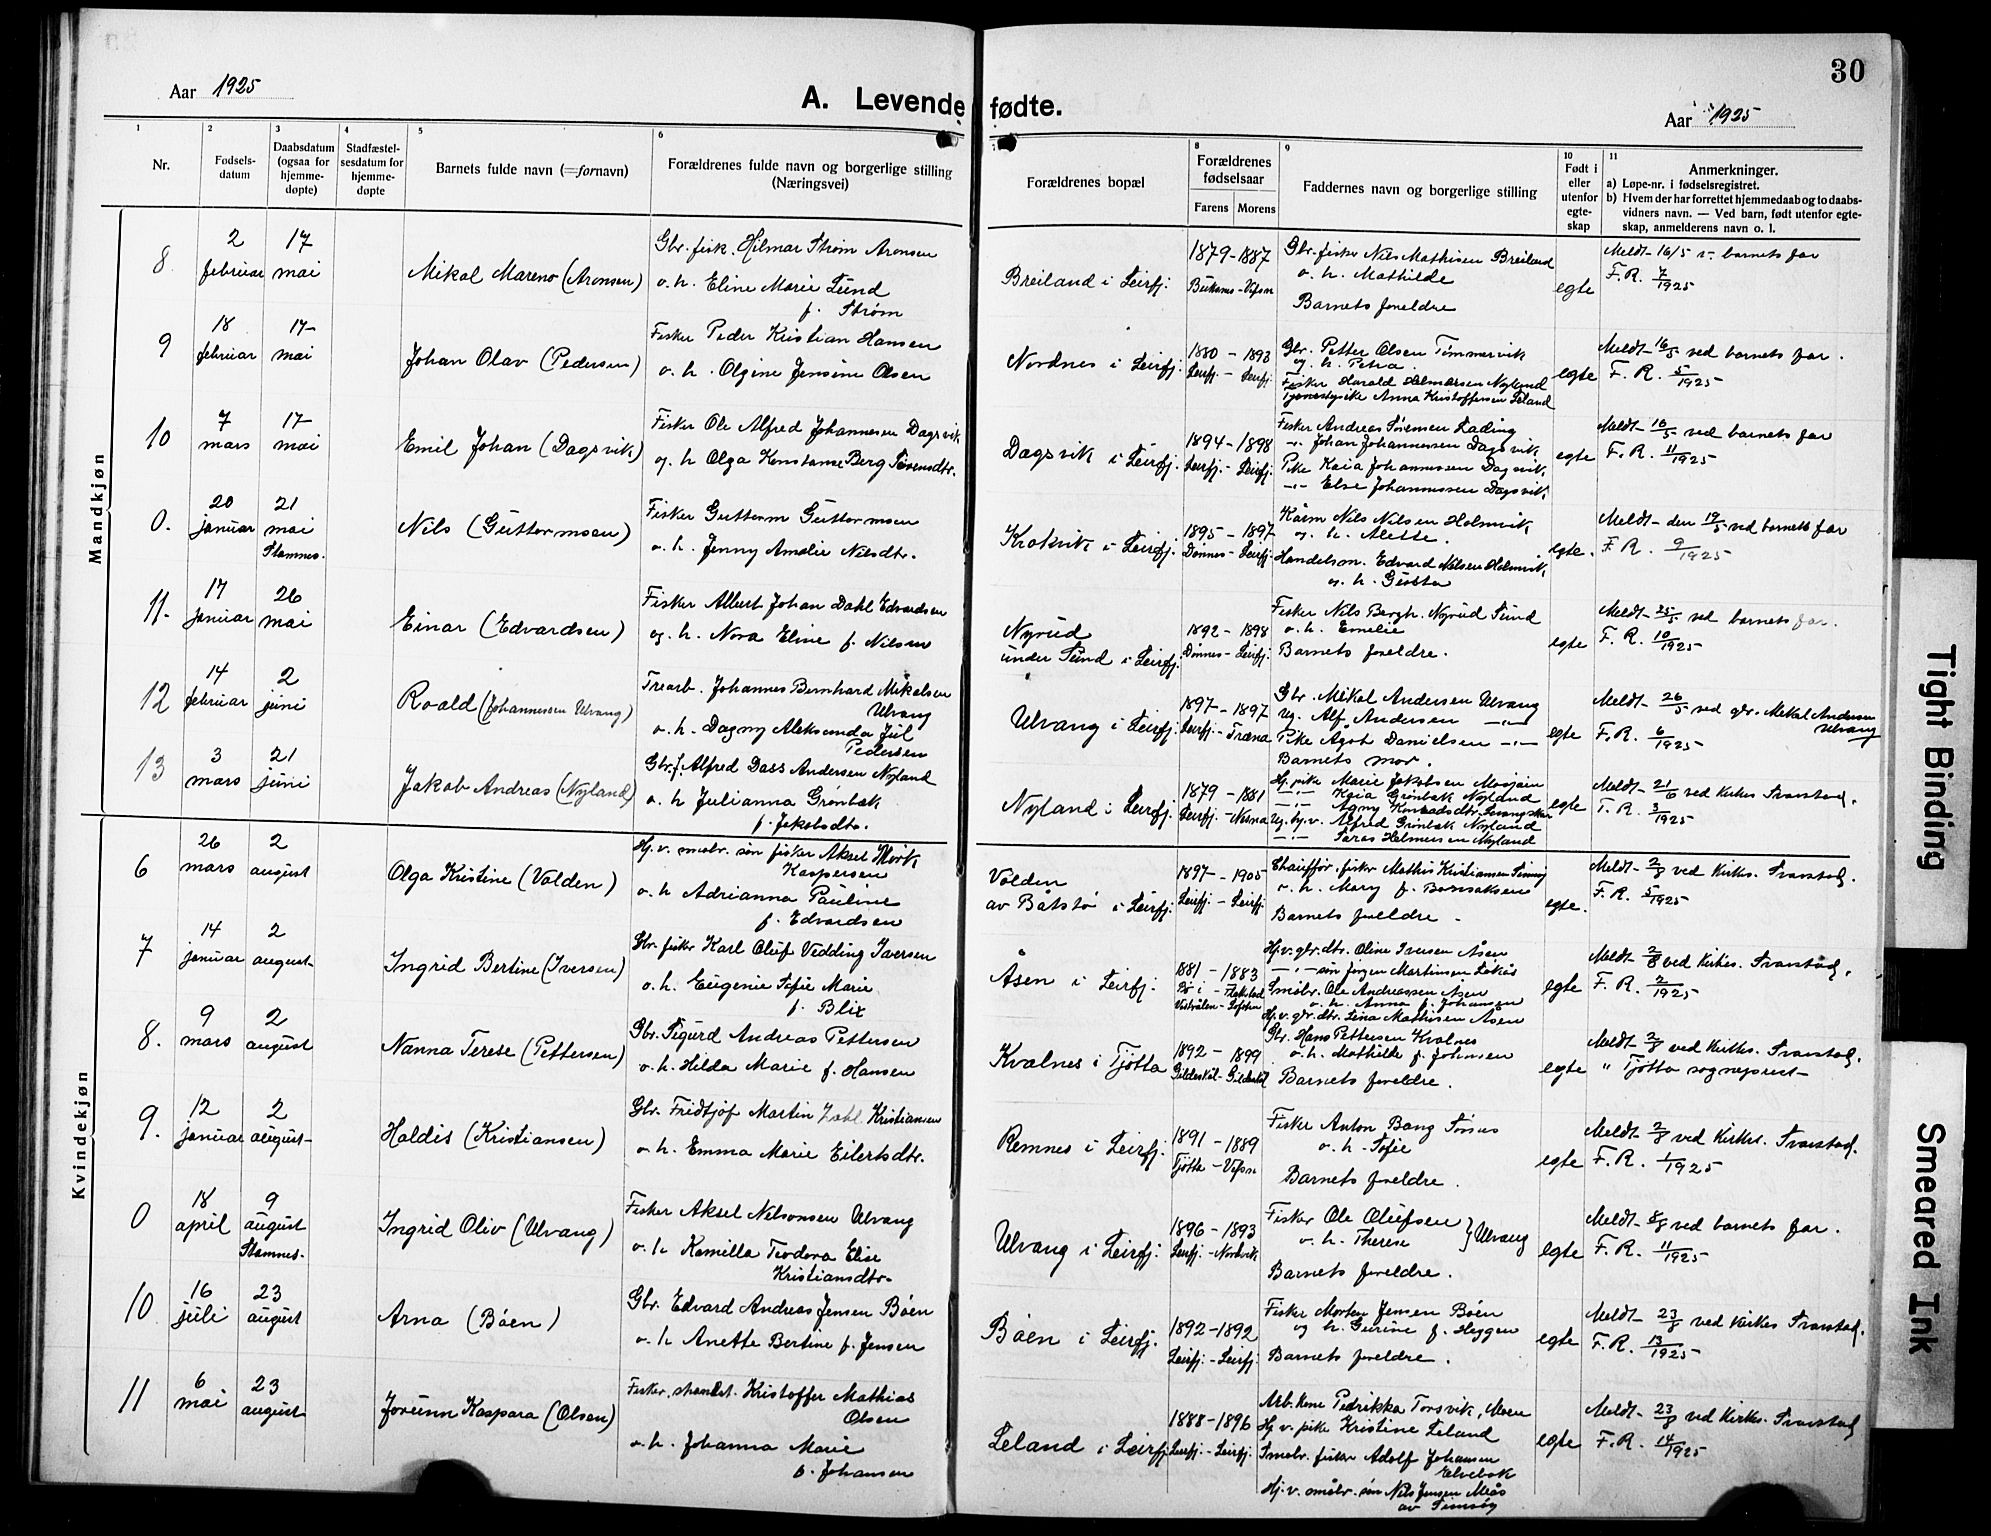 30
Aar 1925
A. Levende fødte.
Aar 1925
1
Nr.
2
Fødsels-
datum
3
Daabsdatum
(ogsaa for
hjemme-
døpte)
4
Stadfæstel-
sesdatum for
hjemme-
døpte
5
Barnets fulde navn (=fornavn)
6
Forældrenes fulde navn og borgerlige stilling
(Næringsvei)
Forældrenes bopæl
8
Forældrenes
fødselsaar
Farens Morens
9
Faddernes navn og borgerlige stilling
10
Født i
eller
utenfor
egte-
skap
11
Anmerkninger.
a) Løpe-nr. i fødselsregistret.
b) Hvem der har forrettet hjemmedaab og to daabs-
vidners navn. — Ved barn, født utenfor egte-
skap, anmelderens navn o. l.
Mandkjøn
8
2 februar
17 mai
Mikal Mareno (Aronsen)
Gbr. fisk. Hilmar Strøm Aronsen
o. h. Eline Marie Sund
f. Strøm
Breiland i Leirfj.
1879 - 1887
Gbr. fisker Nils Mathisen Breiland
o. h. Mathilde
Barnets foreldre
egte
Meldt 16/5 barnets far
F. R. 7/1925
9
18 februar
17 mai
Johan Olav (Pedersen)
Fisker Peder Kristian Hansen
o. h. Olgine Jensine Olsen
Nordnes i Leirfj.
1880 - 1893
Leirfj. - Leirfj.
Gbr. Petter Olsen Timmervik
og h. Petra.
Fisker Harald Helmersen Nyland
Tjenestepike Anna Kristoffersen Leland
egte
Meldt 16/5 ved barnets far.
F. R. 5/1925
10
7 mars
17 mai
Emil Johan (Dagsvik)
Fisker Ole Alfred Johannesen Dagsvik
og h Olga Konstanse Berg Sørensdtr.
Dagsvik i Leirfj.
1894 - 1898
Leirfj. - Leirfj.
Fisker Andreas Sørensen Lading
-"- Johan Johannessen Dagsvik
Pike Kaia Johannessen Dagsvik
-"- Else Johannessen Dagsvik
egte
Meldt 16/5 ved barnets far
F. R. 11/1925
0.
20 januar
21 mai
Stamnes.
Nils (Guttormsen)
Fisker Guttorm Guttormsen
o. h. Jenny Amalie Nilsdtr.
Krokvik i Leirfj.
1895 - 1897
Dønnes - Leirfj.
Kårm Nils Nilsen Holmvik
og h. Alette.
Handelsm. Edvard Nilsen Holmvik
og h. Gusta
egte.
Meldt den 19/5 ved barnets far
F. R. 9/1925
11.
17 januar
26 mai
Einar (Edvardsen)
Fisker Albert Johan Dahl Edvardsen
og h. Nora Eline f. Nilsen
Nyrud
under Sund i Leirfj.
1892 - 1898
Dønnes - Leirfj.
Fisker Nils Bergh. Nyrud Sund
o. h. Emelie
Barnets foreldre.
egte
Meldt 25/5 ved barnets far.
F. R. 10/1925
12
14 februar
2 juni
Roald (Johannessen Ulvang)
Trearb. Johannes Bernhard Mikalsen
Ulvang
o. h. Dagny Aleksanda Jul
Pedersen
Ulvang i Leirfj.
1897 - 1897
Leirfj. - Træna
Gbr. Mikal Andersen Ulvang
Ug. Alf Andersen -"-
Pike Agot Danielsen -"-
Barnets mor.
egte
Meldt 26/5 ved gbr. Mikal Andersen
Ulvang
F. R. 6/1925
13
3 mars
21 juni
Jakob Andreas (Nyland)
Gbr. f. Alfred Dass Andersen Nyland
o. h Julianna Grønbæk
f. Jakobsdtr.
Nyland i Leirfj.
1879 - 1881
Leirfj. - Nesna
Hj. pike Marie Jakobsen Mosjøen
-"- Kaia Grønbæk Nyland
-"- Agny
Alfred Grønbæk Nyland
-"- Helmersen Nyland
egte
Meldt 21/6 ved Kirkes. Svarstad.
F. R. 3/1925
Kvindekjøn
6
26 mars
2 august
Olga Kristine (Valden)
Hj. v. småbr. søn fisker Aksel Mørk
Kaspersen
o. h Adrianna Pauline
f. Edvardsen
Volden
av Båtstø i Leirfj.
1897 - 1905
Leirfj. - Leirfj.
Chauffør, fisker Mathis Kristiansen
o. h. Mary f.
Barnets foreldre
egte.
Meldt 2/8 ved Kirkes. Svarstad.
F. R. 5/1925
7
14 januar
2 august
Ingrid Bertine (Iversen)
Gbr. fisker Karl Oluf Vedding Iversen
o. h. Eugenie Sofie Marie
f. Blix
Åsen i Leirfj.
1881 - 1883
Bø i - Flakstad
Vesterålen - Lofoten
Hj. v. gbr. dtr. Oline Iversen Åsen
-"- søn Jørgen Martinsen Løkås
Småbr. Ole Andreassen Åsen
o. h. Anna f. Johansen
Hj. v. gbr. dtr. Lina Mathisen Åsen
egte
Meldt 2/8 ved Kirkes. Svarstad.
F. R. 2/1925
8.
9 mars
2 august
Nanna Terese (Pettersen)
Gbr. Sigurd Andreas Pettersen
o. h. Hilda Marie f. Hansen
Kvalnes i Tjøtta
1892 - 1899
Gildeskål - Gildeskål
Gbr. Hans Pettersen Kvalnes
o. h. Mathilde f. Johansen
Barnets foreldre.
egte
Meldt 2/8 ved Kirkes. Svarstad.
" Tjøtta sogneprest
9.
12 januar
2 august
Haldis (Kristiansen)
Gbr. Fridtjof Martin Zahl Kristiansen
o. h. Emma Marie Eilertsdtr.
Remnes i Leirfj.
1891 - 1889
Tjøtta - Vefsn
Fisker Anton Bang
o. h. Sofie
Barnets foreldre.
egte
Meldt 2/8 ved Kirkes. Svarstad.
F. R. 1/1925
0
18 april
9 august
Stamnes.
Ingrid Oliv (Ulvang)
Fisker Aksel Nelsonsen Ulvang
o. h Kamilla Teodora Elise
Kristiansdtr.
Ulvang i Leirfj.
1896 - 1893
Leirfj. - Nordvik
Fisker Ole Olufsen
o. h. Therese } Ulvang
Barnets foreldre.
egte
Meldt 8/8 ved barnets far.
F. R. 11/1925
10
16 juli
23 august
Arna (Båen)
Gbr. Edvard Andreas Jensen Båen
o. h Anette Bertine f. Jensen
Båen i Leirfj.
1892-1892
Leirfj. - Leirfj.
Fisker Morten Jensen Båen
og h. Gurine f. Heggen
Barnets foreldre.
egte
Meldt 23/8 ved Kirkes Svarstad.
F. R. 13/1925
11
6 mai
23 august
Jorunn Kaspara (Olsen)
Fisker, strandst. Kristoffer Mathias
Olsen
o. h. Johanna Marie
f. Johansen
Leland i Leirfj.
1888-1896
Leirfj. - Leirfj.
Arb. kone Pedrikka Forsvik, Moen
Hj. v. pike Kristine Leland
Småbr. fisker Adolf Johansen
Elvebak
Hj. v. småbr. søn Nils Jensen Meås
egte
Meldt 23/8 ved Kirkes. Svarstad
F. R. 14/1925
Tight Binding
Smeared Ink